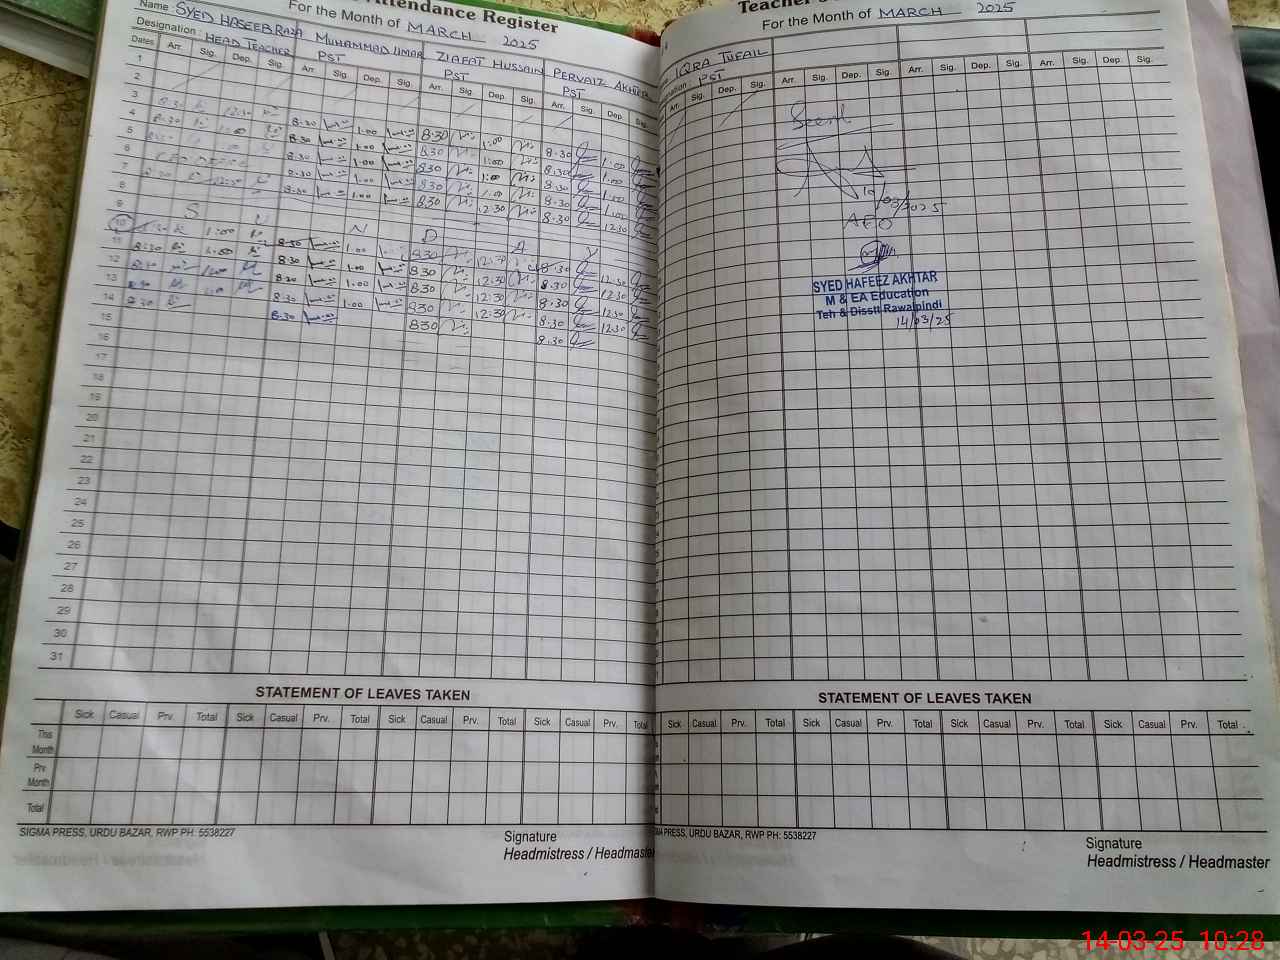 Attendance Register
For the Month of MARCH 2025
Name SYED HASEEB RAZA MUHAMMAD UMAR ZIAFAT HUSSAIN PERVAIZ AKHTER
Designation: HEAD TEACHER PST PST PST
Dates Arr. Sig. Dep. Sig. Arr. Sig. Dep. Sig. Arr. Sig. Dep. Sig. Arr. Sig. Dep. Sig.
1
2
3 8:30 12:30 8:30 1:00 8:30 1:00 8:30 1:00
4 8:30 1:00 8:30 1:00 830 1:00 8:30 1:00
5 8:30 1:00 830 1:00 8:30 1:00
6 8:30 1:00 830 1:00 8:30 1:00
7 8:30 12:30 8:30 1:00 830 12:30 8:30 12:30
8
9 S U N D A Y
10 1:00 8:30 1:00 830 12:30 8:30 12:30
11 8:30 1:00 8:30 1:00 830 12:30 8:30 12:30
12 8:30 1:00 8:30 1:00 830 12:30 8:30 12:30
13 8:30 1:00 8:30 1:00 830 12:30 8:30 12:30
14 8:30 8:30 830 8:30
15
16
17
18
19
20
21
22
23
24
25
26
27
28
29
30
31
STATEMENT OF LEAVES TAKEN
Sick Casual Prv. Total Sick Casual Prv. Total Sick Casual Prv. Total Sick Casual Prv. Total
This Month
Prv Month
Total
SIGMA PRESS, URDU BAZAR, RWP PH: 5538227
Signature
Headmistress / Headmaster
Teacher's
For the Month of MARCH 2025
IQRA TUFAIL
PST
Arr. Sig. Dep. Sig. Arr. Sig. Dep. Sig. Arr. Sig. Dep. Sig. Arr. Sig. Dep. Sig.
Seen
10/03/2025
AEO
SYED HAFEEZ AKHTAR
M & EA Education
Teh & Disstt Rawalpindi
14/03/25
STATEMENT OF LEAVES TAKEN
Sick Casual Prv. Total Sick Casual Prv. Total Sick Casual Prv. Total Sick Casual Prv. Total
SIGMA PRESS, URDU BAZAR, RWP PH: 5538227
Signature
Headmistress / Headmaster
14-03-25 10:28